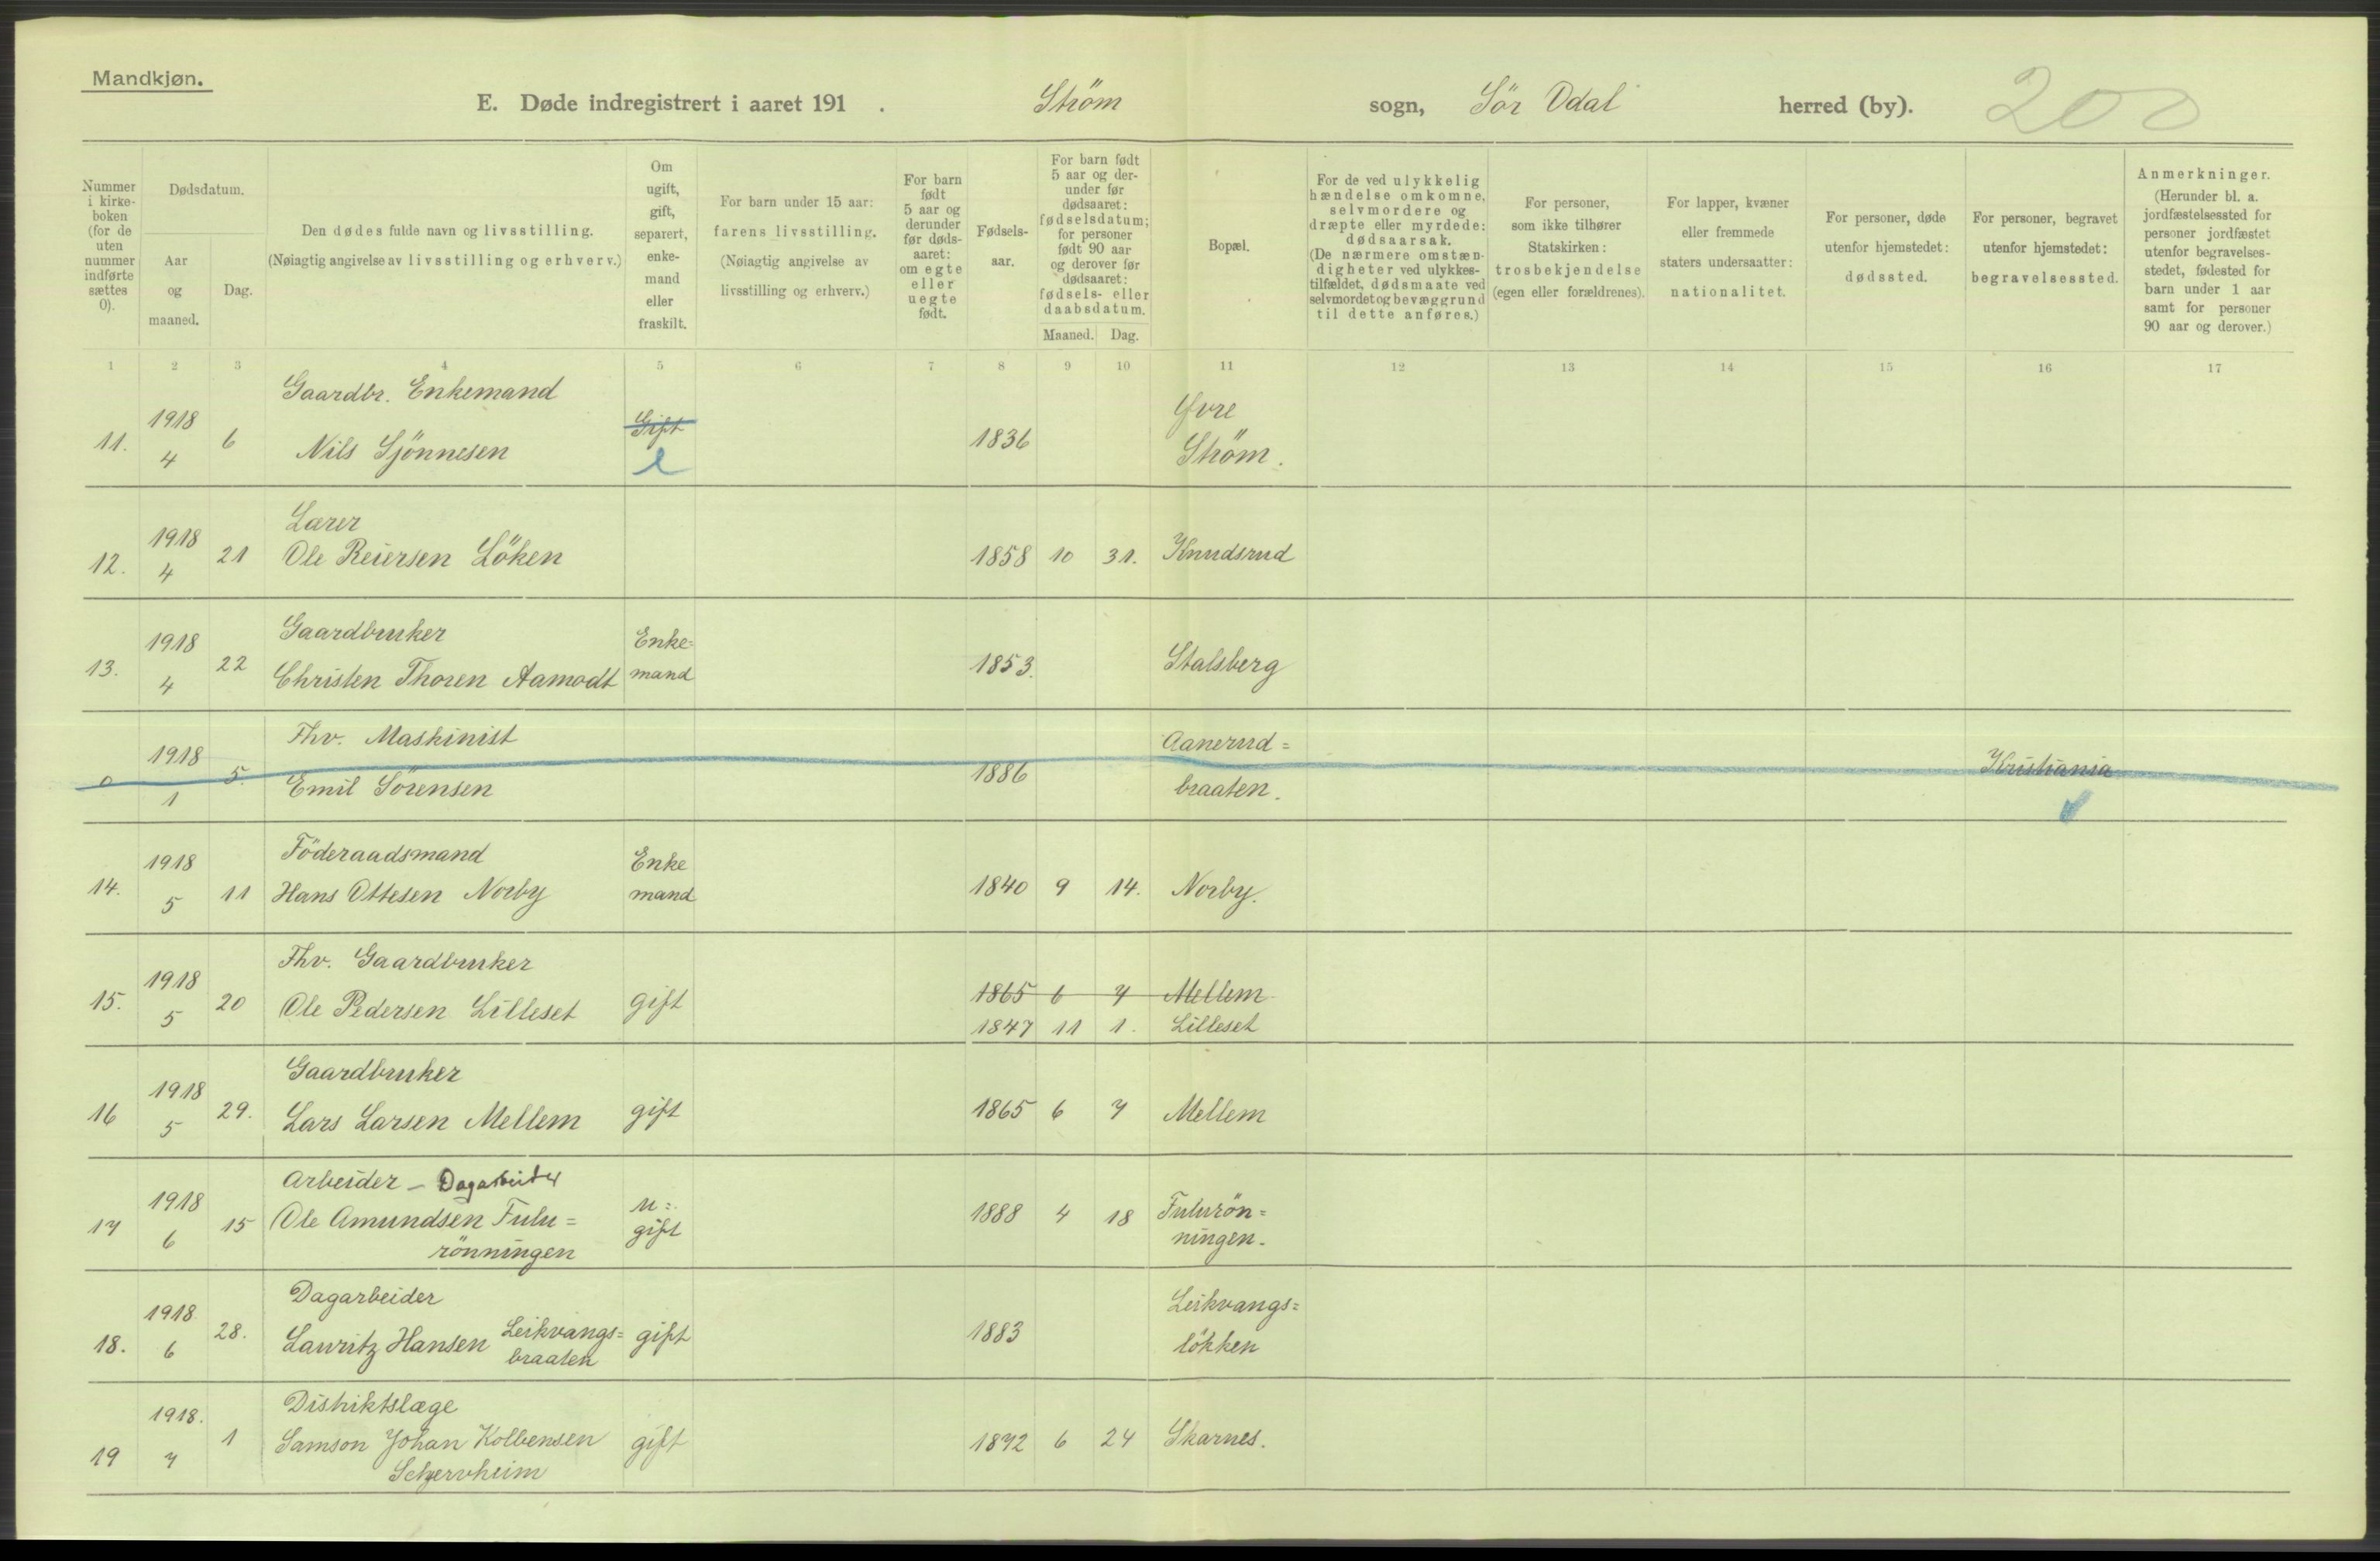 Mandkjøn.
E. Døde indregistrert i aaret 191 . Ström sogn, Sör Odal herred (by). 200
Nummer i kirke-boken (for de uten nummer indførte sættes 0).
Dødsdatum.
Aar og maaned.
Dag.
Den dødes fulde navn og livsstilling.
(Nøiagtig angivelse av livsstilling og erhverv.)
Om ugift, gift, separert, enke-mand eller fraskilt.
For barn under 15 aar: farens livsstilling.
(Nøiagtig angivelse av livsstilling og erhverv.)
For barn født 5 aar og derunder før døds-aaret: om egte eller uegte født.
Fødsels-aar.
For barn født 5 aar og der-under før dødsaaret: fødselsdatum; for personer født 90 aar og derover før dødsaaret: fødsels- eller daabsdatum.
Maaned. Dag.
Bopæl.
For de ved ulykkelig hændelse omkomne, selvmordere og dræpte eller myrdede: dødsaarsak.
(De nærmere omstæn-digheter ved ulykkes-tilfældet, dødsmaate ved selvmordet og bevæggrund til dette anføres.)
For personer, som ikke tilhører Statskirken: trosbekjendelse (egen eller forældrenes).
For lapper, kvæner eller fremmede staters undersaatter: nationalitet.
For personer, døde utenfor hjemstedet: dødssted.
For personer, begravet utenfor hjemstedet: begravelsessted.
Anmerkninger.
(Herunder bl. a. jordfæstelsessted for personer jordfæstet utenfor begravelses-stedet, fødested for barn under 1 aar samt for personer 90 aar og derover.)
1 2 3 4 5 6 7 8 9 10 11 12 13 14 15 16 17
Gaardbr. Enkemand Yvre
11. 1918 4 6 Nils Sjönnesen Gift e 1836 Ström.
Lærer
12. 1918 4 21 Ole Reiersen Löken 1858 10 31. Knudsrud
Gaardbruker Enke=
13. 1918 4 22 Christen Thoren Aamodt mand 1853. Stalsberg
Fhv. Maskinist Aanerud=
0 1918 1 5. Emil Sörensen 1886 braaten. Kristiania
Föderaadsmand Enke
14. 1918 5 11 Hans Ottesen Norby mand 1840 9 14. Norby.
Fhv. Gaardbruker
15. 1918 5 20 Ole Pedersen Lilleset gift 1865 6 7 Mellem
1847 11 1. Lilleset
Gaardbruker
16 1918 5 29. Lars Larsen Mellem gift 1865 6 7 Mellem
Arbeider – Dagarbeider
17 1918 6 15 Ole Amundsen Fulu= u= 1888 4 18 Fulurön=
rönningen gift ningen.
Dagarbeider Leikvangs=
18. 1918 6 28. Lauritz Hansen Leikvangs= gift 1883 lökken
braaten
Distriktslæge
19 1918. 7 1 Samson Johan Kolbensen gift 1872 6 24 Skarnes.